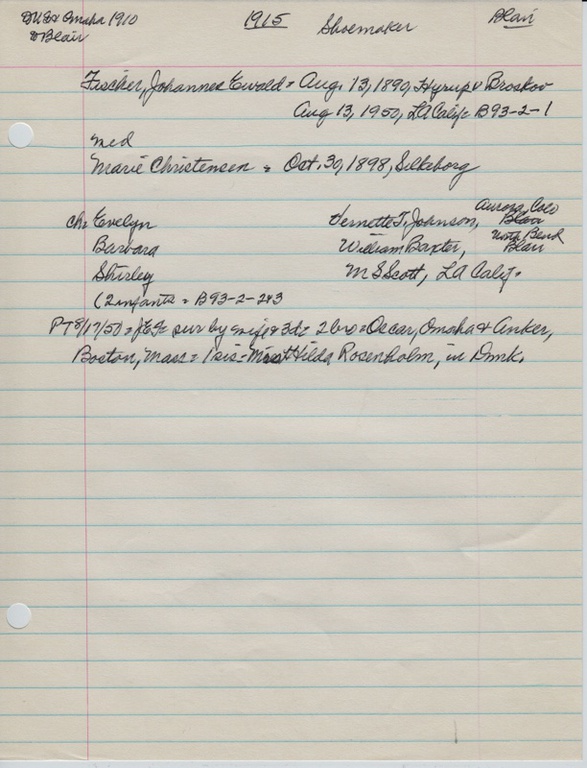 Omaha 1910 1915 Shoemaker Blair
& Blair
Fischer, Johannes Ewald = Aug. 13, 1890, Hyrup v Broskov
Aug 13, 1950, LA Calif = B93-2-1
med
Marie Christensen = Oct. 30, 1898, Silkeborg
Aurora, Colo
ch: Evelyn Vernette T. Johnson, Blair
North Bend
Barbara William Baxter, Blair
Shirley M S Scott, LA Calif.
(2 infants = B93-2-2&3
PT 8/17/50 = JEF sur by wife & 3d = 2 bro = Oscar, Omaha & Anker,
Boston, Mass = 1 sis = Hilda Rosenholm, in Dmk.